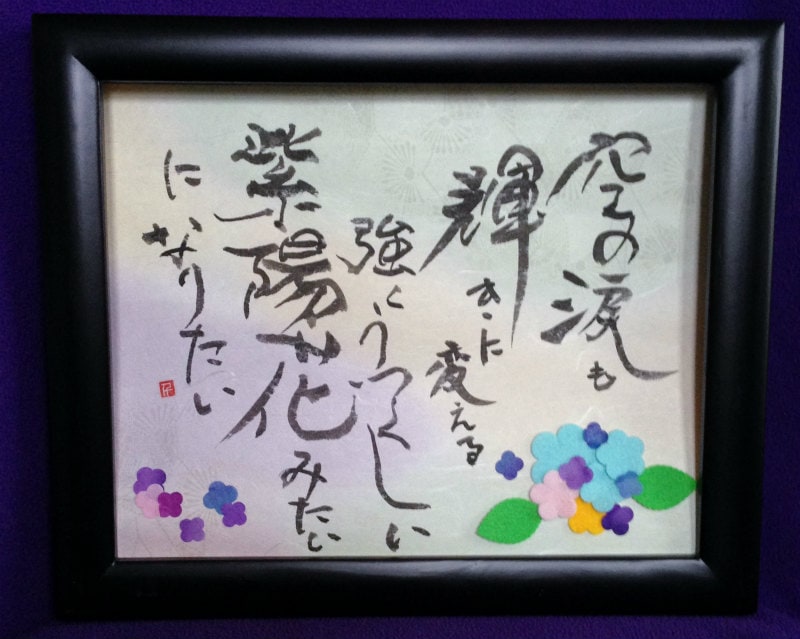 空の涙も
輝きに変える
強くうつくしい
紫陽花みたい
になりたい